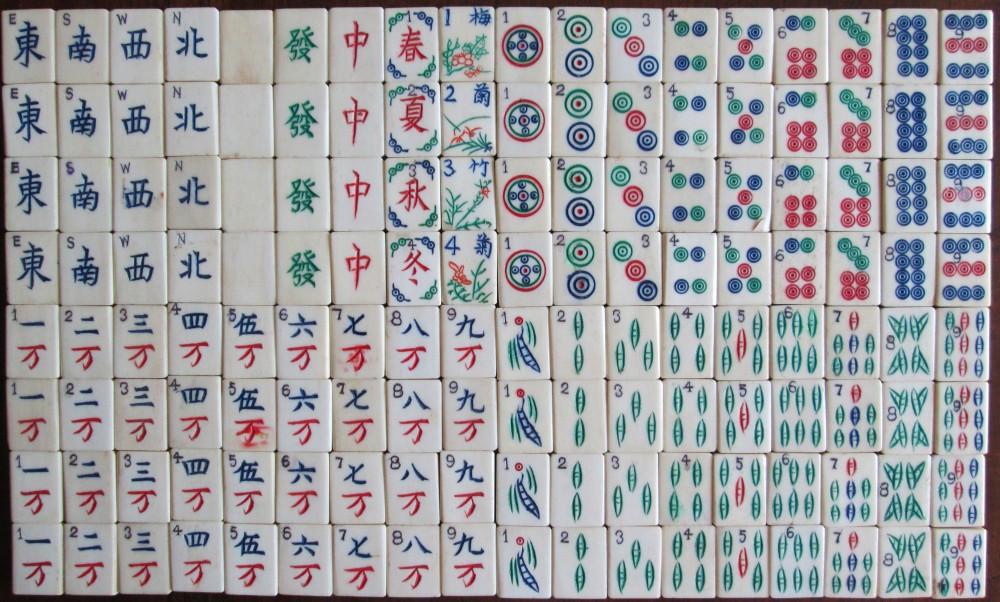 E 東 S 南 W 西 N 北 發 中 1 春 1 梅 1 2 3 4 5 6 7 8 9
E 東 S 南 W 西 N 北 發 中 2 夏 2 1 2 3 4 5 6 7 8 9
E 東 S 南 W 西 N 北 發 中 3 秋 3 竹 1 2 3 4 5 6 7 8 9
E 東 S 南 W 西 N 北 發 中 4 冬 4 菊 1 2 3 4 5 6 7 8 9
1 一万 2 二万 3 三万 4 四万 5 伍万 6 六万 7 七万 8 八万 9 九万 1 2 3 4 5 6 7 8 9
1 一万 2 二万 3 三万 4 四万 5 伍万 6 六万 7 七万 8 八万 9 九万 1 2 3 4 5 6 7 8 9
1 一万 2 二万 3 三万 4 四万 5 伍万 6 六万 7 七万 8 八万 9 九万 1 2 3 4 5 6 7 8 9
1 一万 2 二万 3 三万 4 四万 5 伍万 6 六万 7 七万 8 八万 9 九万 1 2 3 4 5 6 7 8 9